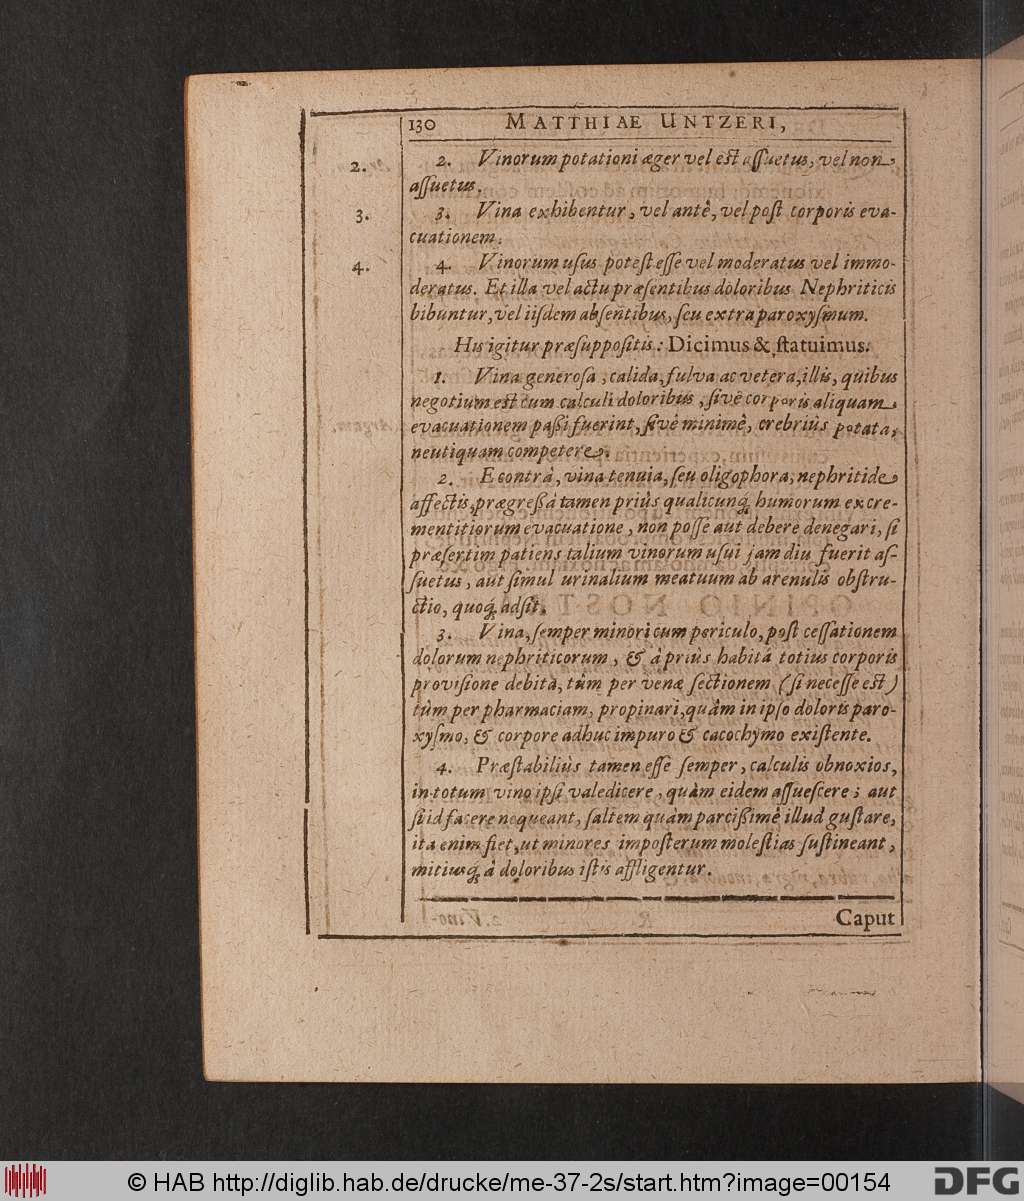 130 MATTHIAE UNTZERI,
2. 2. Vinorum potationi æger vel est assuetus, vel non
assuetus.
3. 3. Vina exhibentur, vel antè, vel post corporis eva-
cuationem.
4. 4. Vinorum usus potest esse vel moderatus vel immo-
deratus. Et illa vel actu præsentibus doloribus Nephriticis
bibuntur, vel iisdem absentibus, seu extra paroxysmum.
His igitur præsuppositis: Dicimus & statuimus.
1. Vina generosa, calida, fulva ac vetera, illis, quibus
negotium est cum calculi doloribus, sivè corporis aliquam
evacuationem passi fuerint, sivè minimè, crebriùs potata,
neutiquam competere.
2. E contrà, vina tenuia, seu oligophora, nephritide
affectis, prægressâ tamen priùs qualicunq́ humorum excre-
mentitiorum evacuatione, non posse aut debere denegari, si
præsertim patiens talium vinorum usui jam diu fuerit as-
suetus, aut simul urinalium meatuum ab arenulis obstru-
ctio, quoq́ adsit.
3. Vina, semper minori cum periculo, post cessationem
dolorum nephriticorum, & à priùs habitâ totius corporis
provisione debitâ, tùm per venæ sectionem (si necesse est)
tùm per pharmaciam, propinari, quàm in ipso doloris paro-
xysmo, & corpore adhuc impuro & cacochymo existente.
4. Præstabiliùs tamen esse semper, calculis obnoxios,
in totum vino ipsi valedicere, quàm eidem assuescere; aut
si id facere nequeant, saltem quàm parcissimè illud gustare,
ita enim fiet, ut minores imposterum molestias sustineant,
mitiusq́ à doloribus istis affligentur.
Caput
© HAB http://diglib.hab.de/drucke/me-37-2s/start.htm?image=00154
DFG